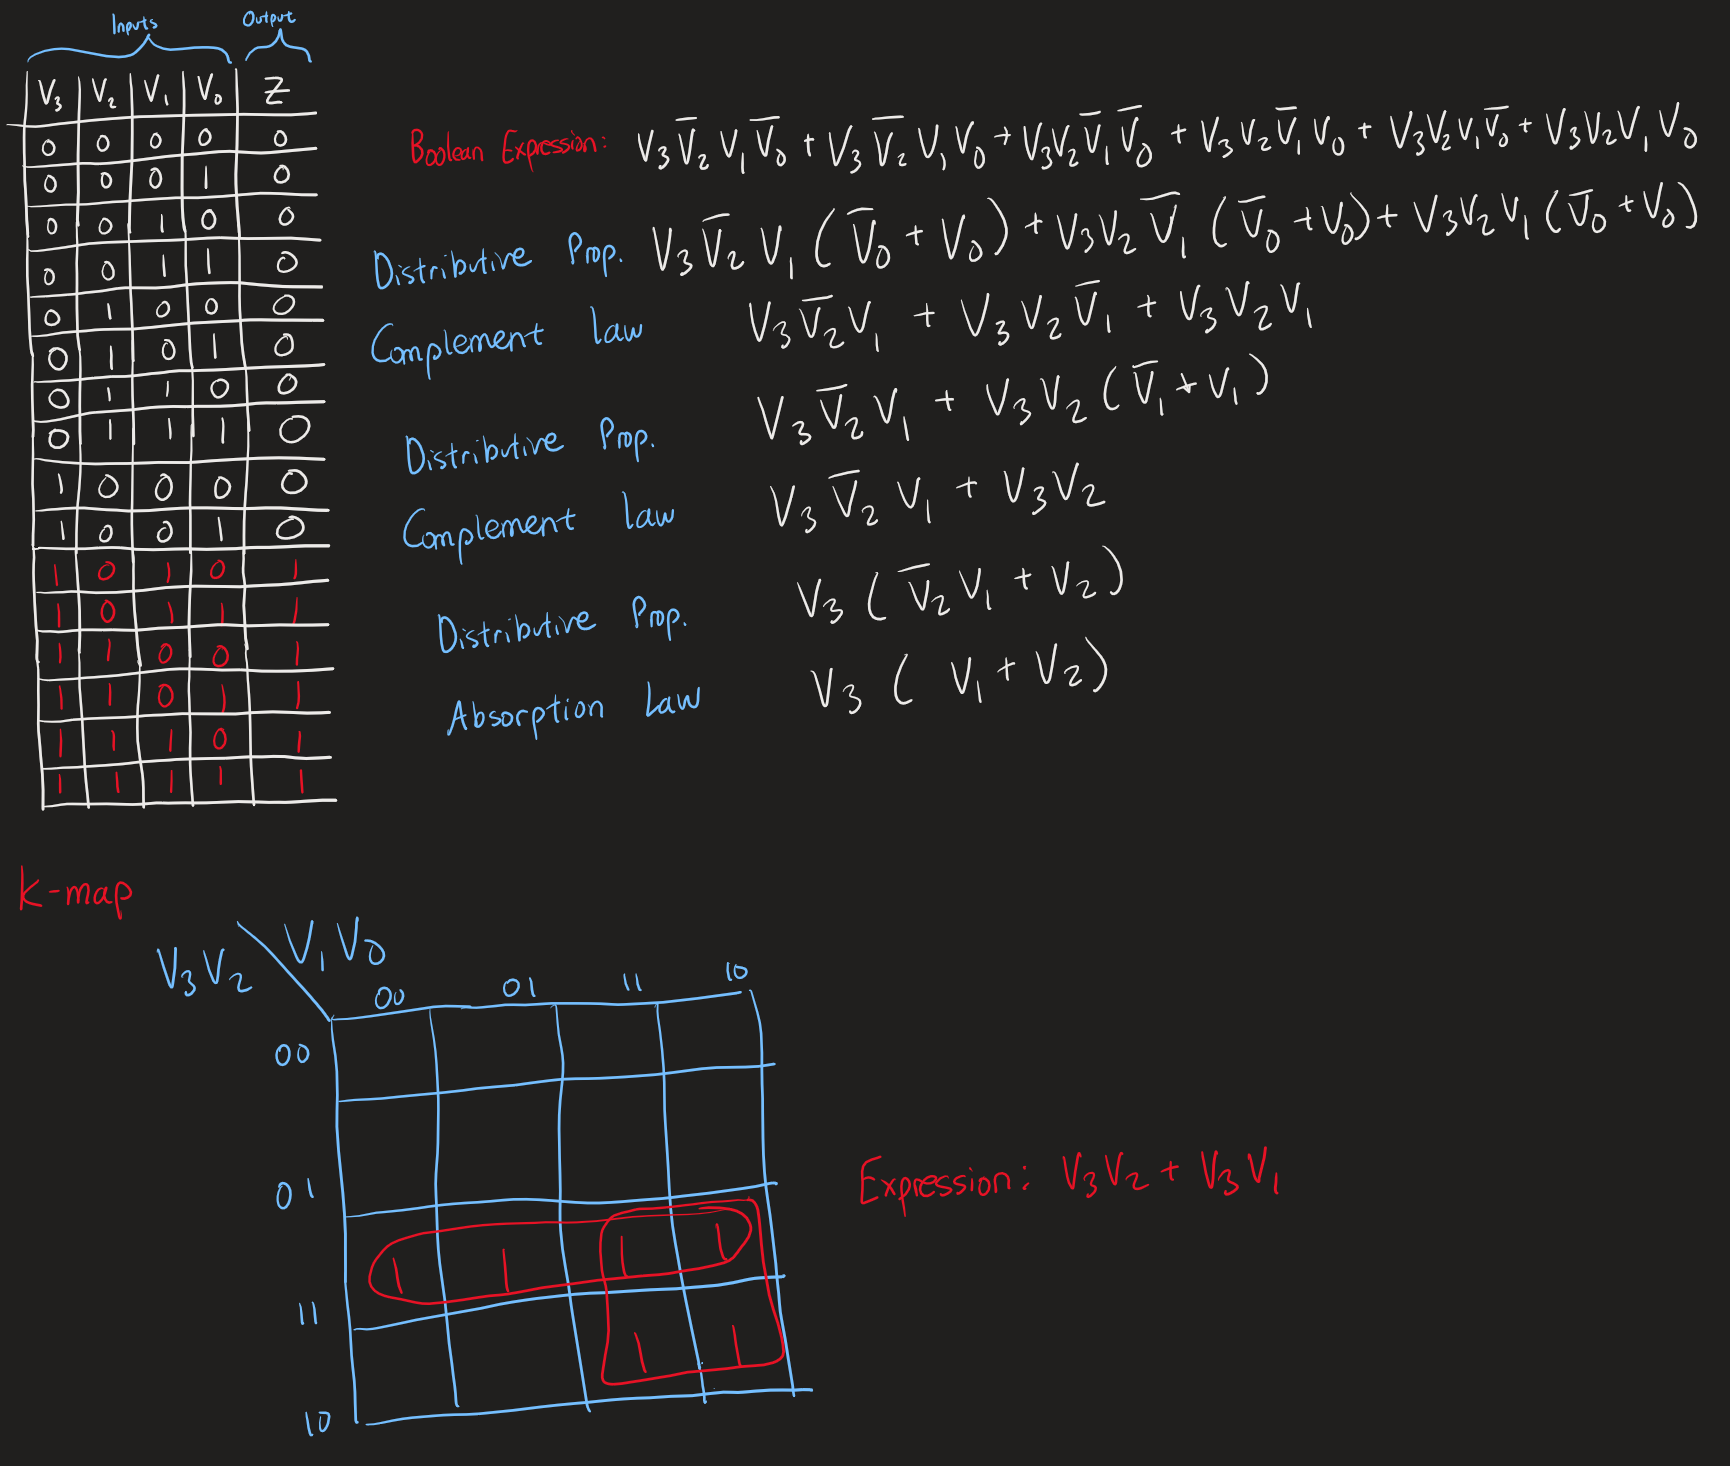 Inputs Output
V₃ V₂ V₁ V₀ Z
0 0 0 0 0
0 0 0 1 0
0 0 1 0 0
0 0 1 1 0
0 1 0 0 0
0 1 0 1 0
0 1 1 0 0
0 1 1 1 0
1 0 0 0 0
1 0 0 1 0
1 0 1 0 1
1 0 1 1 1
1 1 0 0 1
1 1 0 1 1
1 1 1 0 1
1 1 1 1 1
Boolean Expression: V₃V̅₂V₁V̅₀ + V₃V̅₂V₁V₀ + V₃V₂V̅₁V̅₀ + V₃V₂V̅₁V₀ + V₃V₂V₁V̅₀ + V₃V₂V₁V₀
Distributive Prop. V₃V̅₂V₁(V̅₀ + V₀) + V₃V₂V̅₁(V̅₀ + V₀) + V₃V₂V₁(V̅₀ + V₀)
Complement law V₃V̅₂V₁ + V₃V₂V̅₁ + V₃V₂V₁
Distributive Prop. V₃V̅₂V₁ + V₃V₂(V̅₁ + V₁)
Complement law V₃V̅₂V₁ + V₃V₂
Distributive Prop. V₃(V̅₂V₁ + V₂)
Absorption Law V₃(V₁ + V₂)
K-map
V₃V₂ V₁V₀
00 01 11 10
00
01
1 1 1 1
11
1 1
10
Expression: V₃V₂ + V₃V₁